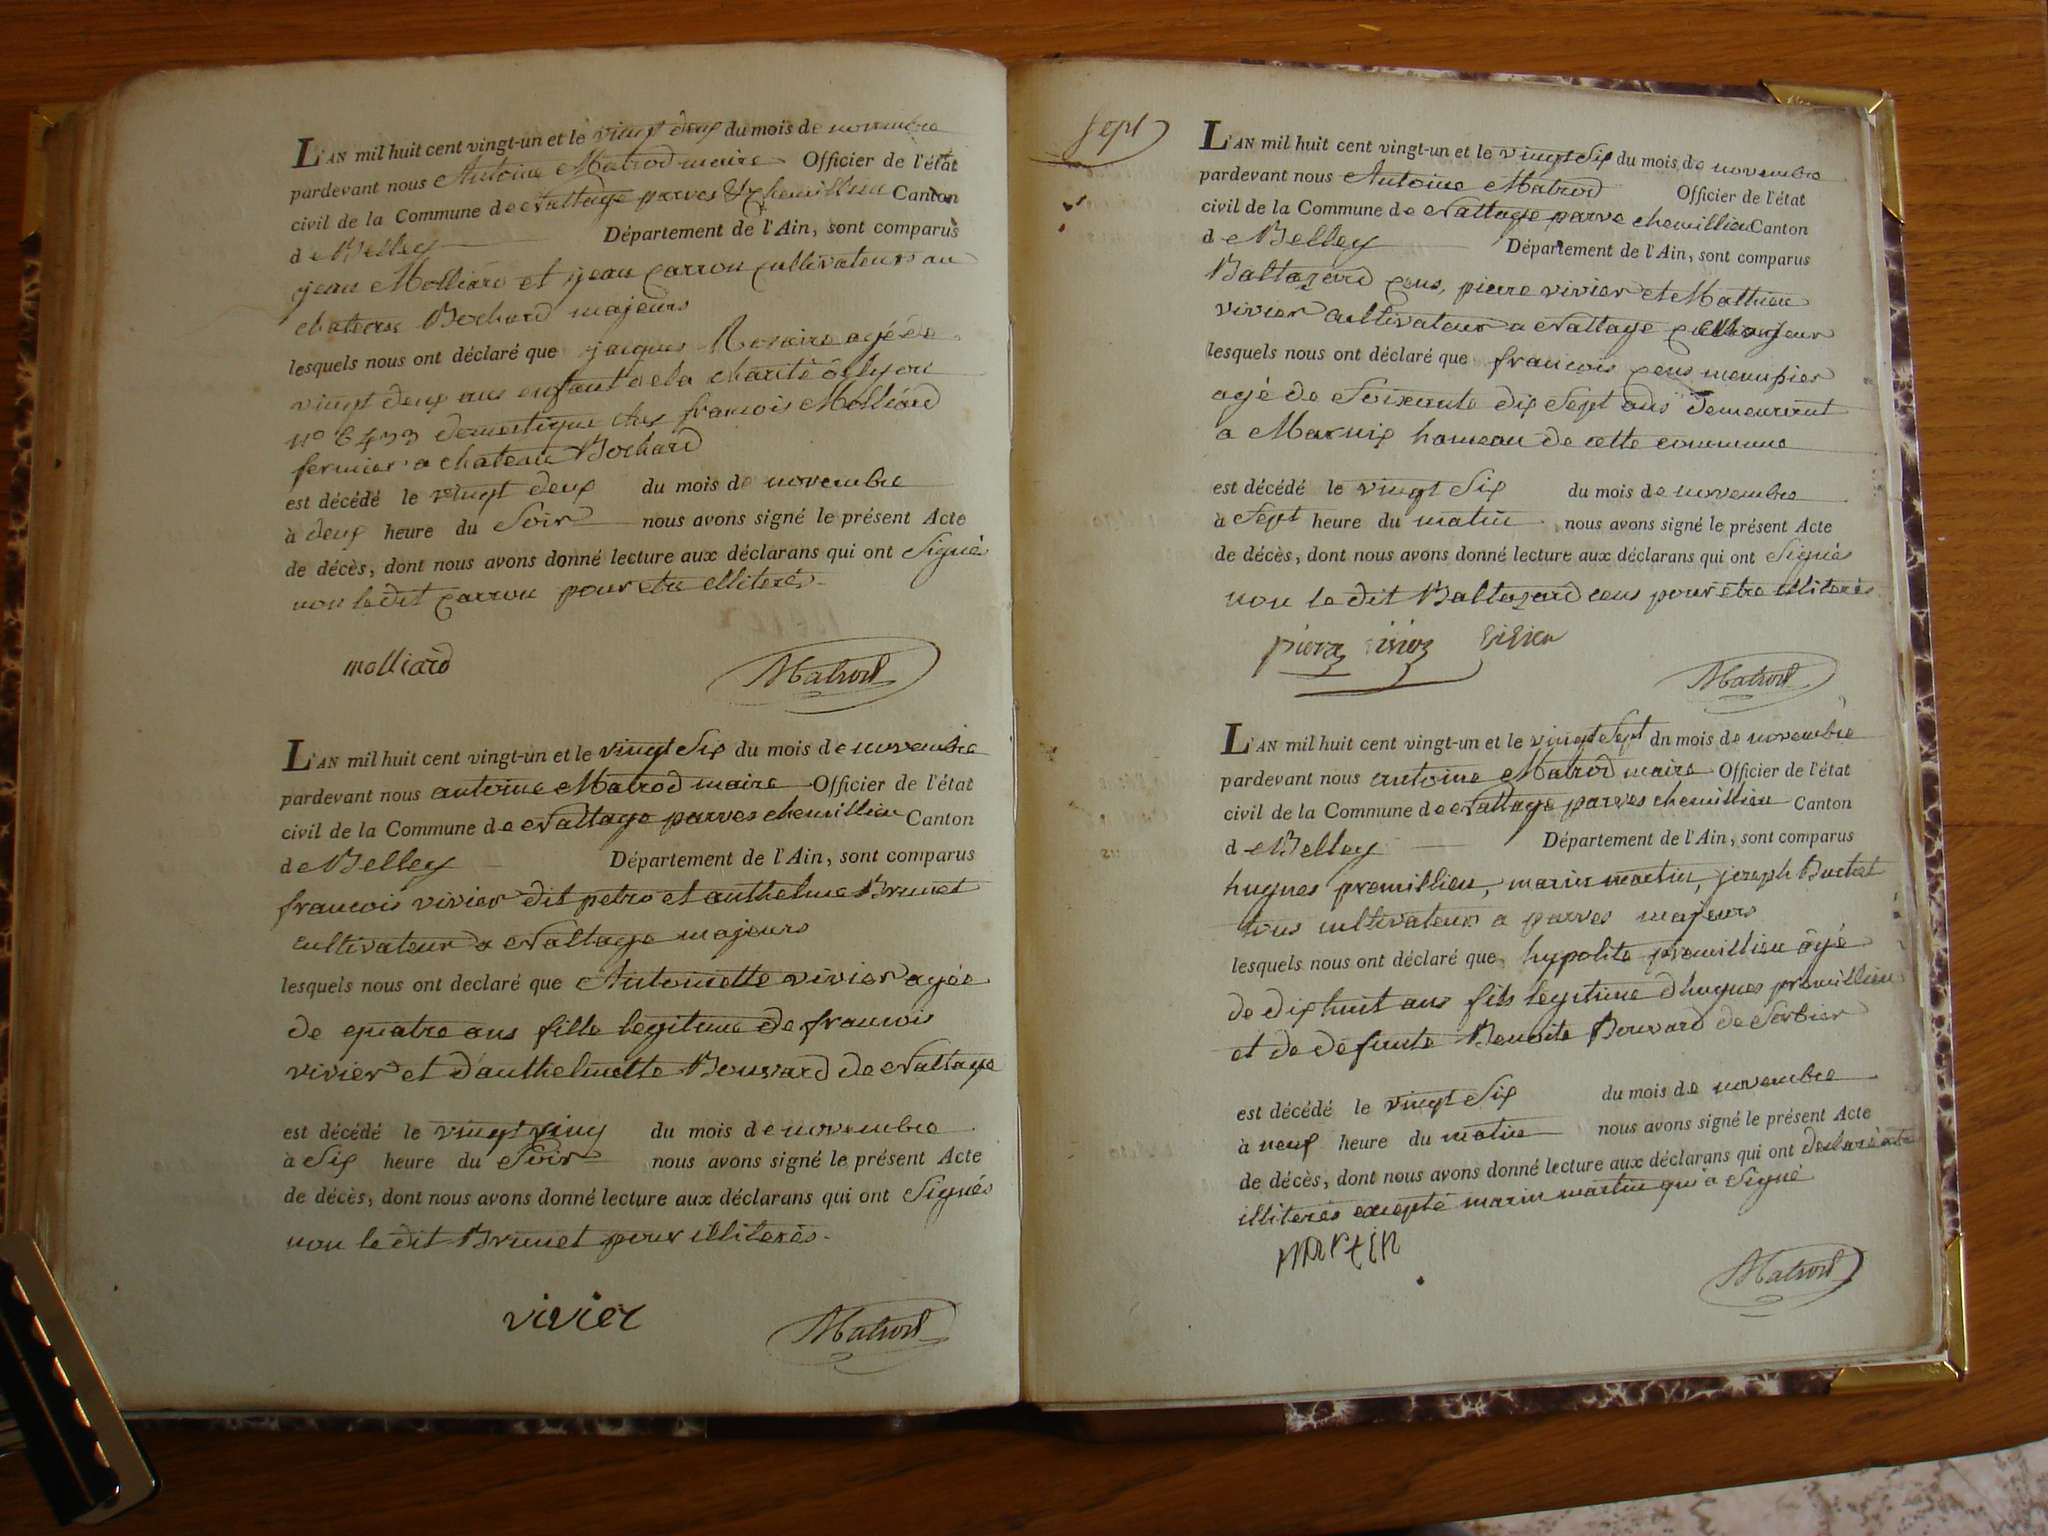 L'AN mil huit cent vingt-un et le vingt deux du mois de novembre
pardevant nous Antoine Matrod maire Officier de l'état
civil de la Commune de Nattage parves & chemillieu Canton
de Belley Département de l'Ain, sont comparus
jean Molliard et jean carron cultivateurs au
chateau Bochard majeurs
lesquels nous ont déclaré que jacques agé de
vingt deux ans enfant de la charité de lyon
n° domestique chez francois Molliard
fermier a chateau Bochard
est décédé le vingt deux du mois de novembre
à deux heure du Soir nous avons signé le présent Acte
de décès, dont nous avons donné lecture aux déclarans qui ont Signés
non le dit carron pour etre illiterés.
molliard Matrod
L'AN mil huit cent vingt-un et le vingt Six du mois de novembre
pardevant nous antoine Matrod maire Officier de l'état
civil de la Commune de Nattage parves chemillieu Canton
de Belley Département de l'Ain, sont comparus
francois vivier dit petro et anthelme Brunet
cultivateur a Nattage majeurs
lesquels nous ont declaré que Antoinette vivier agée
de quatre ans fille legitime de francois
vivier et d'anthelmette Bouvard de Nattage
est décédé le vingt cinq du mois de novembre
à Six heure du Soir nous avons signé le présent Acte
de décès, dont nous avons donné lecture aux déclarans qui ont Signés
non le dit Brunet pour illiterés.
vivier Matrod
Sept
L'AN mil huit cent vingt-un et le vingt Six du mois de novembre
pardevant nous Antoine Matrod Officier de l'état
civil de la Commune de Nattage parve chemillieu Canton
de Belley Département de l'Ain, sont comparus
Baltazard cens, pierre vivier et Mathieu
vivier cultivateur a Nattage majeur
lesquels nous ont déclaré que francois cens menusier
agé de Soixante dix Sept ans demeurant
a Marnix hameau de cette commune
est décédé le vingt Six du mois de novembre
à Sept heure du matin nous avons signé le présent Acte
de décès, dont nous avons donné lecture aux déclarans qui ont Signés
non le dit Baltazard cens pour être illiterés
pierre vivier vivier
Matrod
L'AN mil huit cent vingt-un et le vingt Sept dn mois de novembre
pardevant nous antoine Matrod maire Officier de l'état
civil de la Commune de Nattage parves chemillieu Canton
de Belley Département de l'Ain, sont comparus
hugues premillieu, marin martin, joseph Buttet
tous cultivateurs a parves majeurs
lesquels nous ont déclaré que hypolite premillieu âgé
de dix huit ans fils legitime d'hugues premillieu
et de defunte Benoite Bouvard de Sorbier
est décédé le vingt Six du mois de novembre
à neuf heure du matin nous avons signé le présent Acte
de décès, dont nous avons donné lecture aux déclarans qui ont declaré etre
illiterés excepté marin martin qui a Signé
martin
Matrod